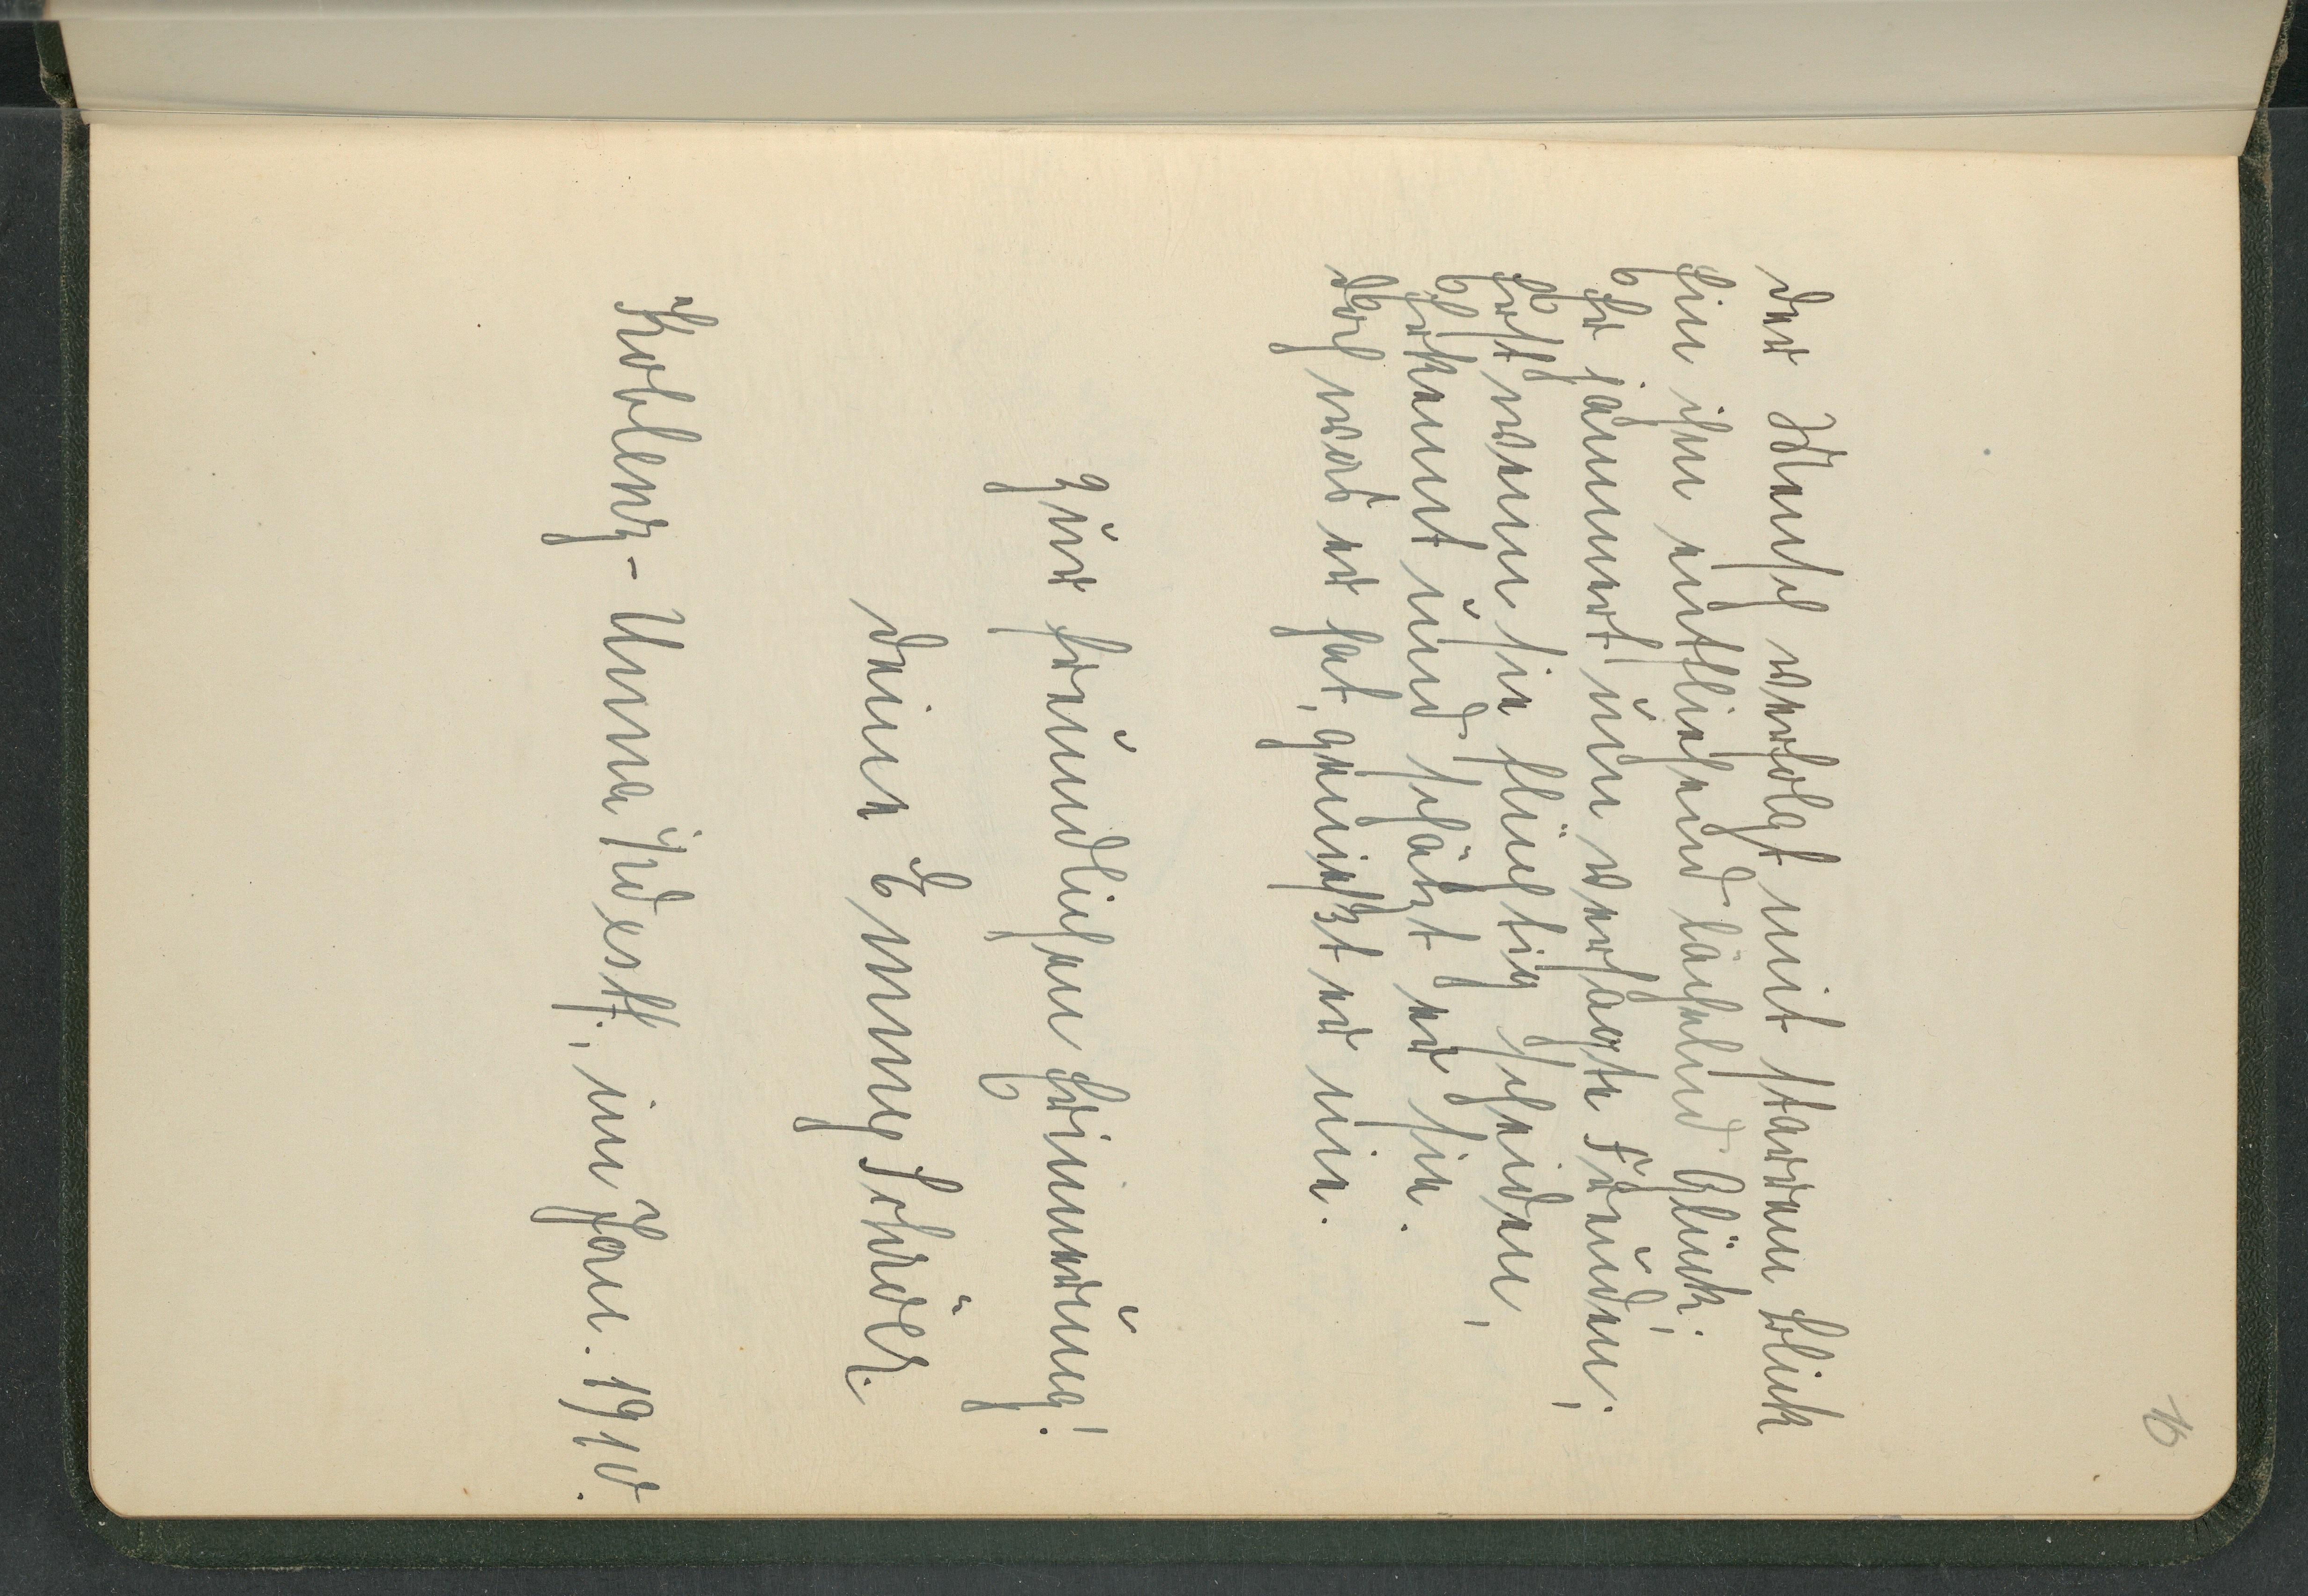 16
Der Mensch verfolgt mit starrem Blick
Ein ihm entfliehend lächelnd Glück;
Er jammert um versagte Freuden;
Erst wenn sie flüchtig scheiden,
Erkennt und schätzt er sie.
Doch was er hat, genießt er nie.
Zur freundlichen Erinnerung!
Deine Emmy Schröder.
im Jan. 1910.